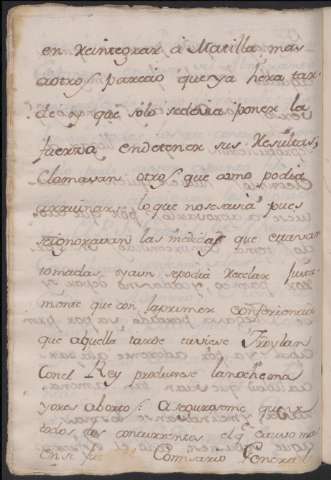 en Reintegrar á Matilla mas
aotros parecio que ya hera tar
de y que solo sedevia poner la
fuerza en detener sus Resultas,
Clamavan otros que como podia
arruinar, lo que no se savia pues
se ignoravan las medidas que estavan
tomadas, y aun se podia Rezelar justa
mente que con la primer conferencia
que aquella tarde tuviese Froylan
Con el Rey produxese la noche ma
yores aborto: Asegurosme que
todos los concurrentes, el q.e estuvo ma
Comisario General